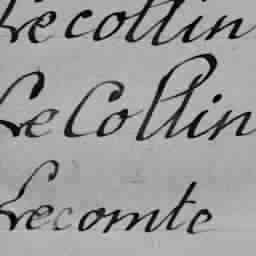 Lecollin
Le Collin
Lecomte